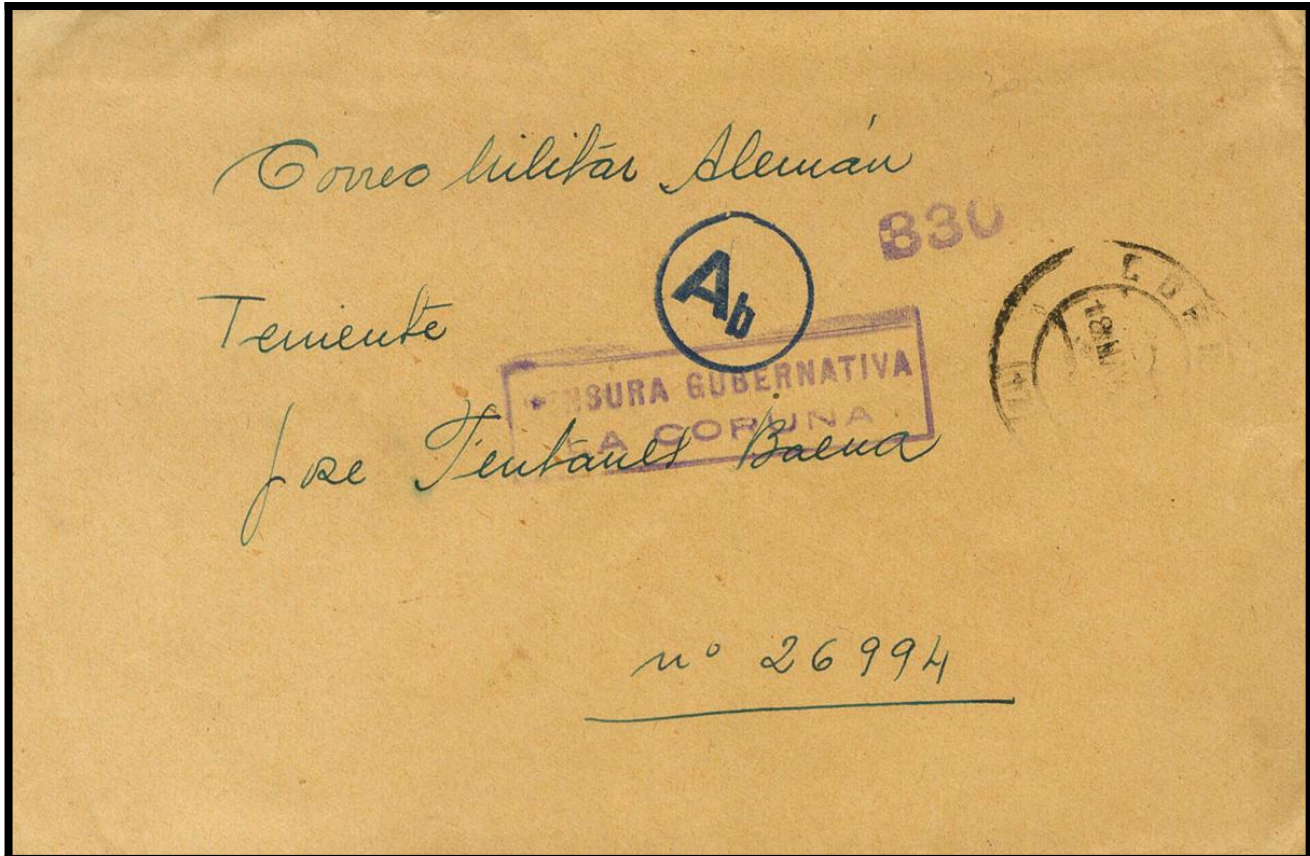 Correo Militár Alemán
830
Ab
Teniente
CENSURA GUBERNATIVA
LA CORUÑA
Jose Baena
nº 26994
18